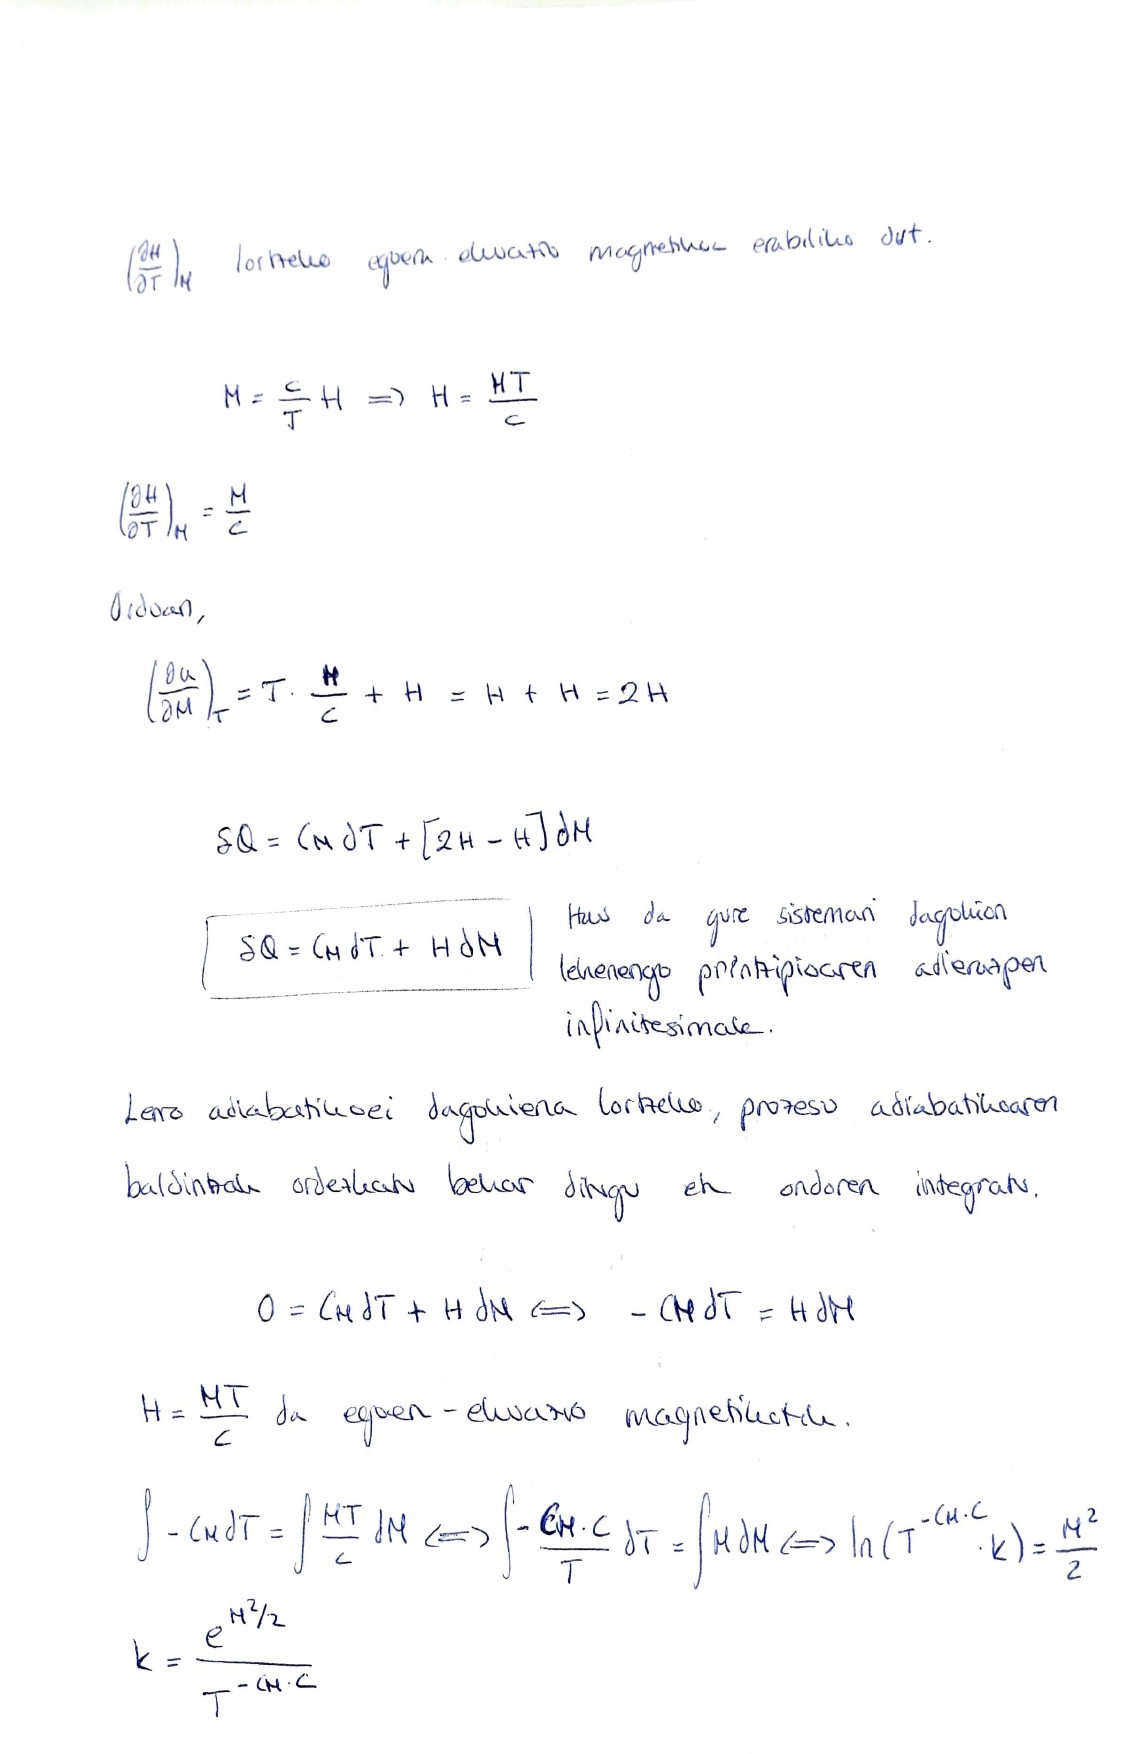 (∂H/∂T)_M lortzeko egoera ekuazio magnetikoa erabiliko dut.
M = C/T H => H = MT/C
(∂H/∂T)_M = M/C
Orduan,
(∂u/∂M)_T = T · M/C + H = H + H = 2H
δQ = C_M dT + [2H - H] dM
δQ = C_M dT + H dM
Hau da gure sistemari dagokion
lehenengo printzipioaren adierazpen
infinitesimala.
Lerro adiabatikoei dagokiena lortzeko, prozesu adiabatikoaren
baldintzak ordezkatu behar ditugu eta ondoren integratu.
0 = C_M dT + H dM <=> - C_M dT = H dM
H = MT/C da egoera-ekuazio magnetikotik.
∫ - C_M dT = ∫ MT/C dM <=> ∫ - C_M·C/T dT = ∫ M dM <=> ln(T^(-C_M·C) · k) = M²/2
k = e^(M²/2) / T^(-C_M·C)